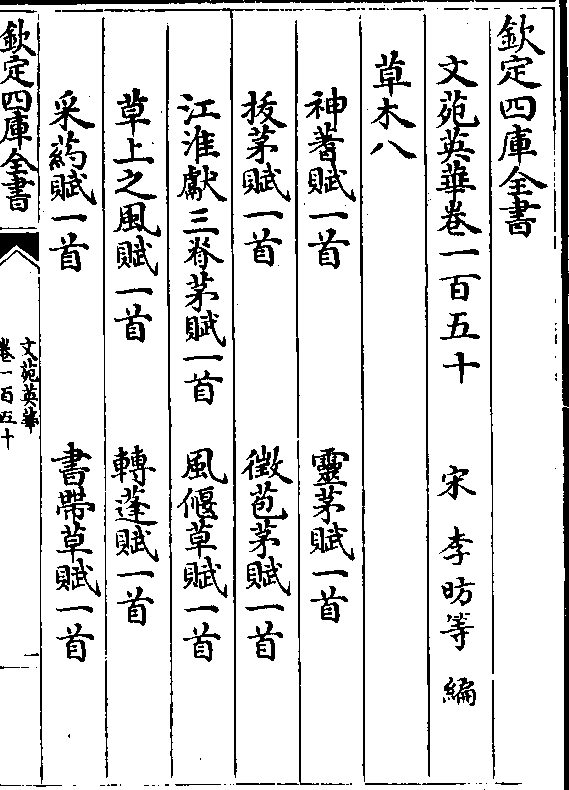 欽定四庫全書
文苑英華卷一百五十
宋 李昉等 編
草木八
神蓍賦一首 靈茅賦一首
拔茅賦一首 徵苞茅賦一首
江淮獻三脊茅賦一首 風偃草賦一首
草上之風賦一首 轉蓬賦一首
采藥賦一首 書帶草賦一首
欽定四庫全書
文苑英華
卷一百五十
一